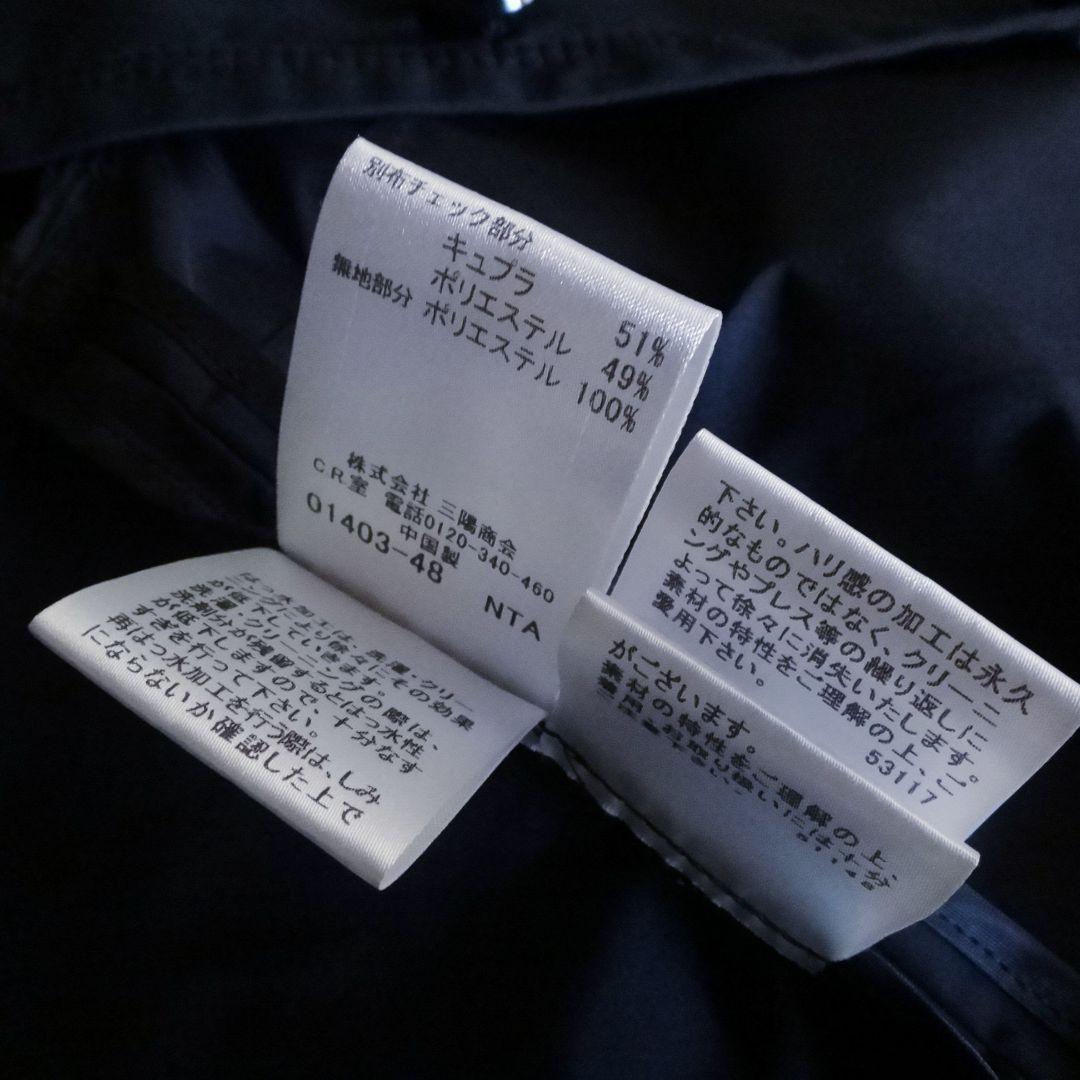 別布チェック部分
キュプラ 51%
ポリエステル 49%
無地部分 ポリエステル 100%
株式会社 三陽商会
CR室 電話0120-340-460
中国製
01403-48
NTA
はっ水加工は、洗濯・クリー
ニングにより徐々にその効果
が低下していきます。
洗濯・クリーニングの際は、
洗剤分が残留するとはっ水性
が低下しますので、十分なす
すぎを行って下さい。
再はっ水加工を行う際は、しみ
にならないか確認した上で
下さい。ハリ感の加工は永久
的なものではなく、クリーニ
ングやプレス等の繰り返しに
よって徐々に消失いたします。
素材の特性をご理解の上、ご
愛用下さい。
53117
がございます。
素材の特性をご理解の上、